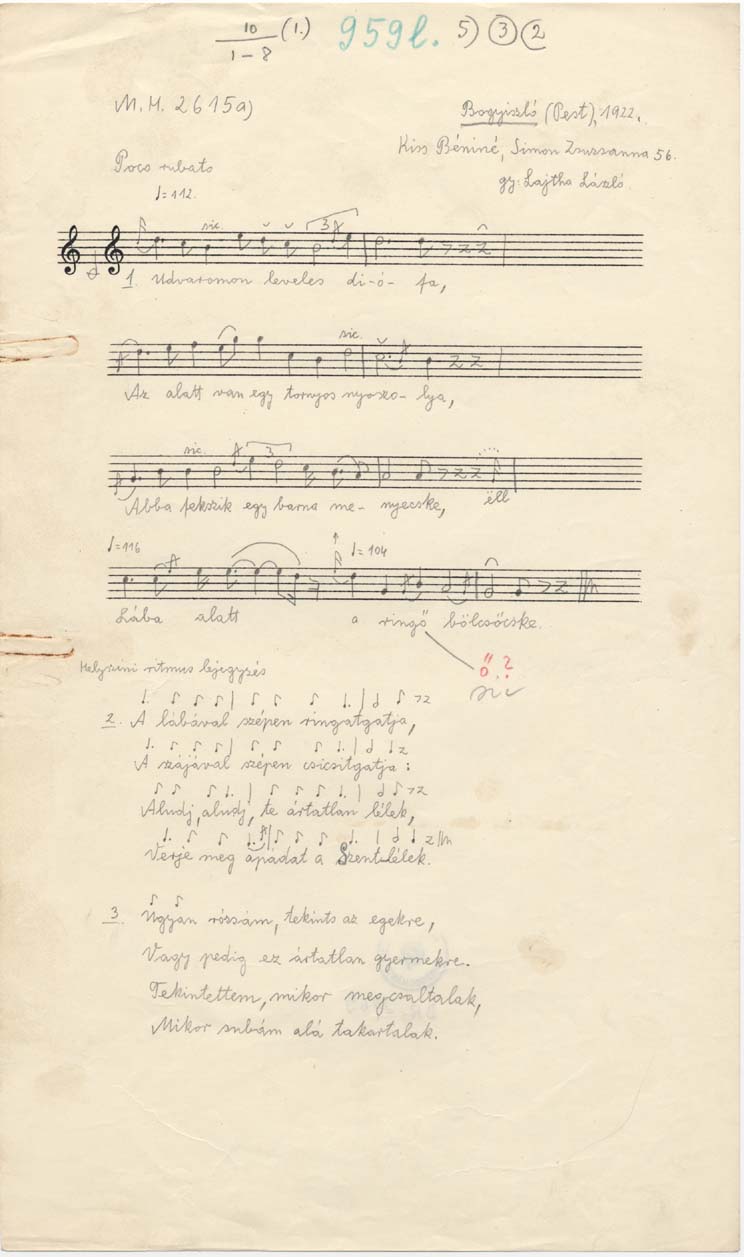 10 (1.) 959l. 5) 3 2
1–8
M.H. 2615a)
Bogyiszló (Pest), 1922.
Kiss Béniné, Simon Zsuzsanna 56.
gy: Lajtha László.
Poco rubato
♩=112.
sic. 3
1. Udvaromon leveles di-ó- fa,
sic.
Az alatt van egy tornyos nyoszo- lya,
sic. 3
Abba fekszik egy barna me- nyecske, ëll
♩=116 ♩=104
Lába alatt a ringő bölcsőcske.
ő? sic
Helyszini ritmus lejegyzés
2. A lábával szépen ringatgatja,
A szájával szépen csicsitgatja:
Aludj, aludj, te ártatlan lélek,
Verje meg apádat a Szentlélek.
3. Ugyan rózsám, tekints az egekre,
Vagy pedig ez ártatlan gyermekre.
Tekintettem, mikor megcsaltalak,
Mikor subám alá takartalak.